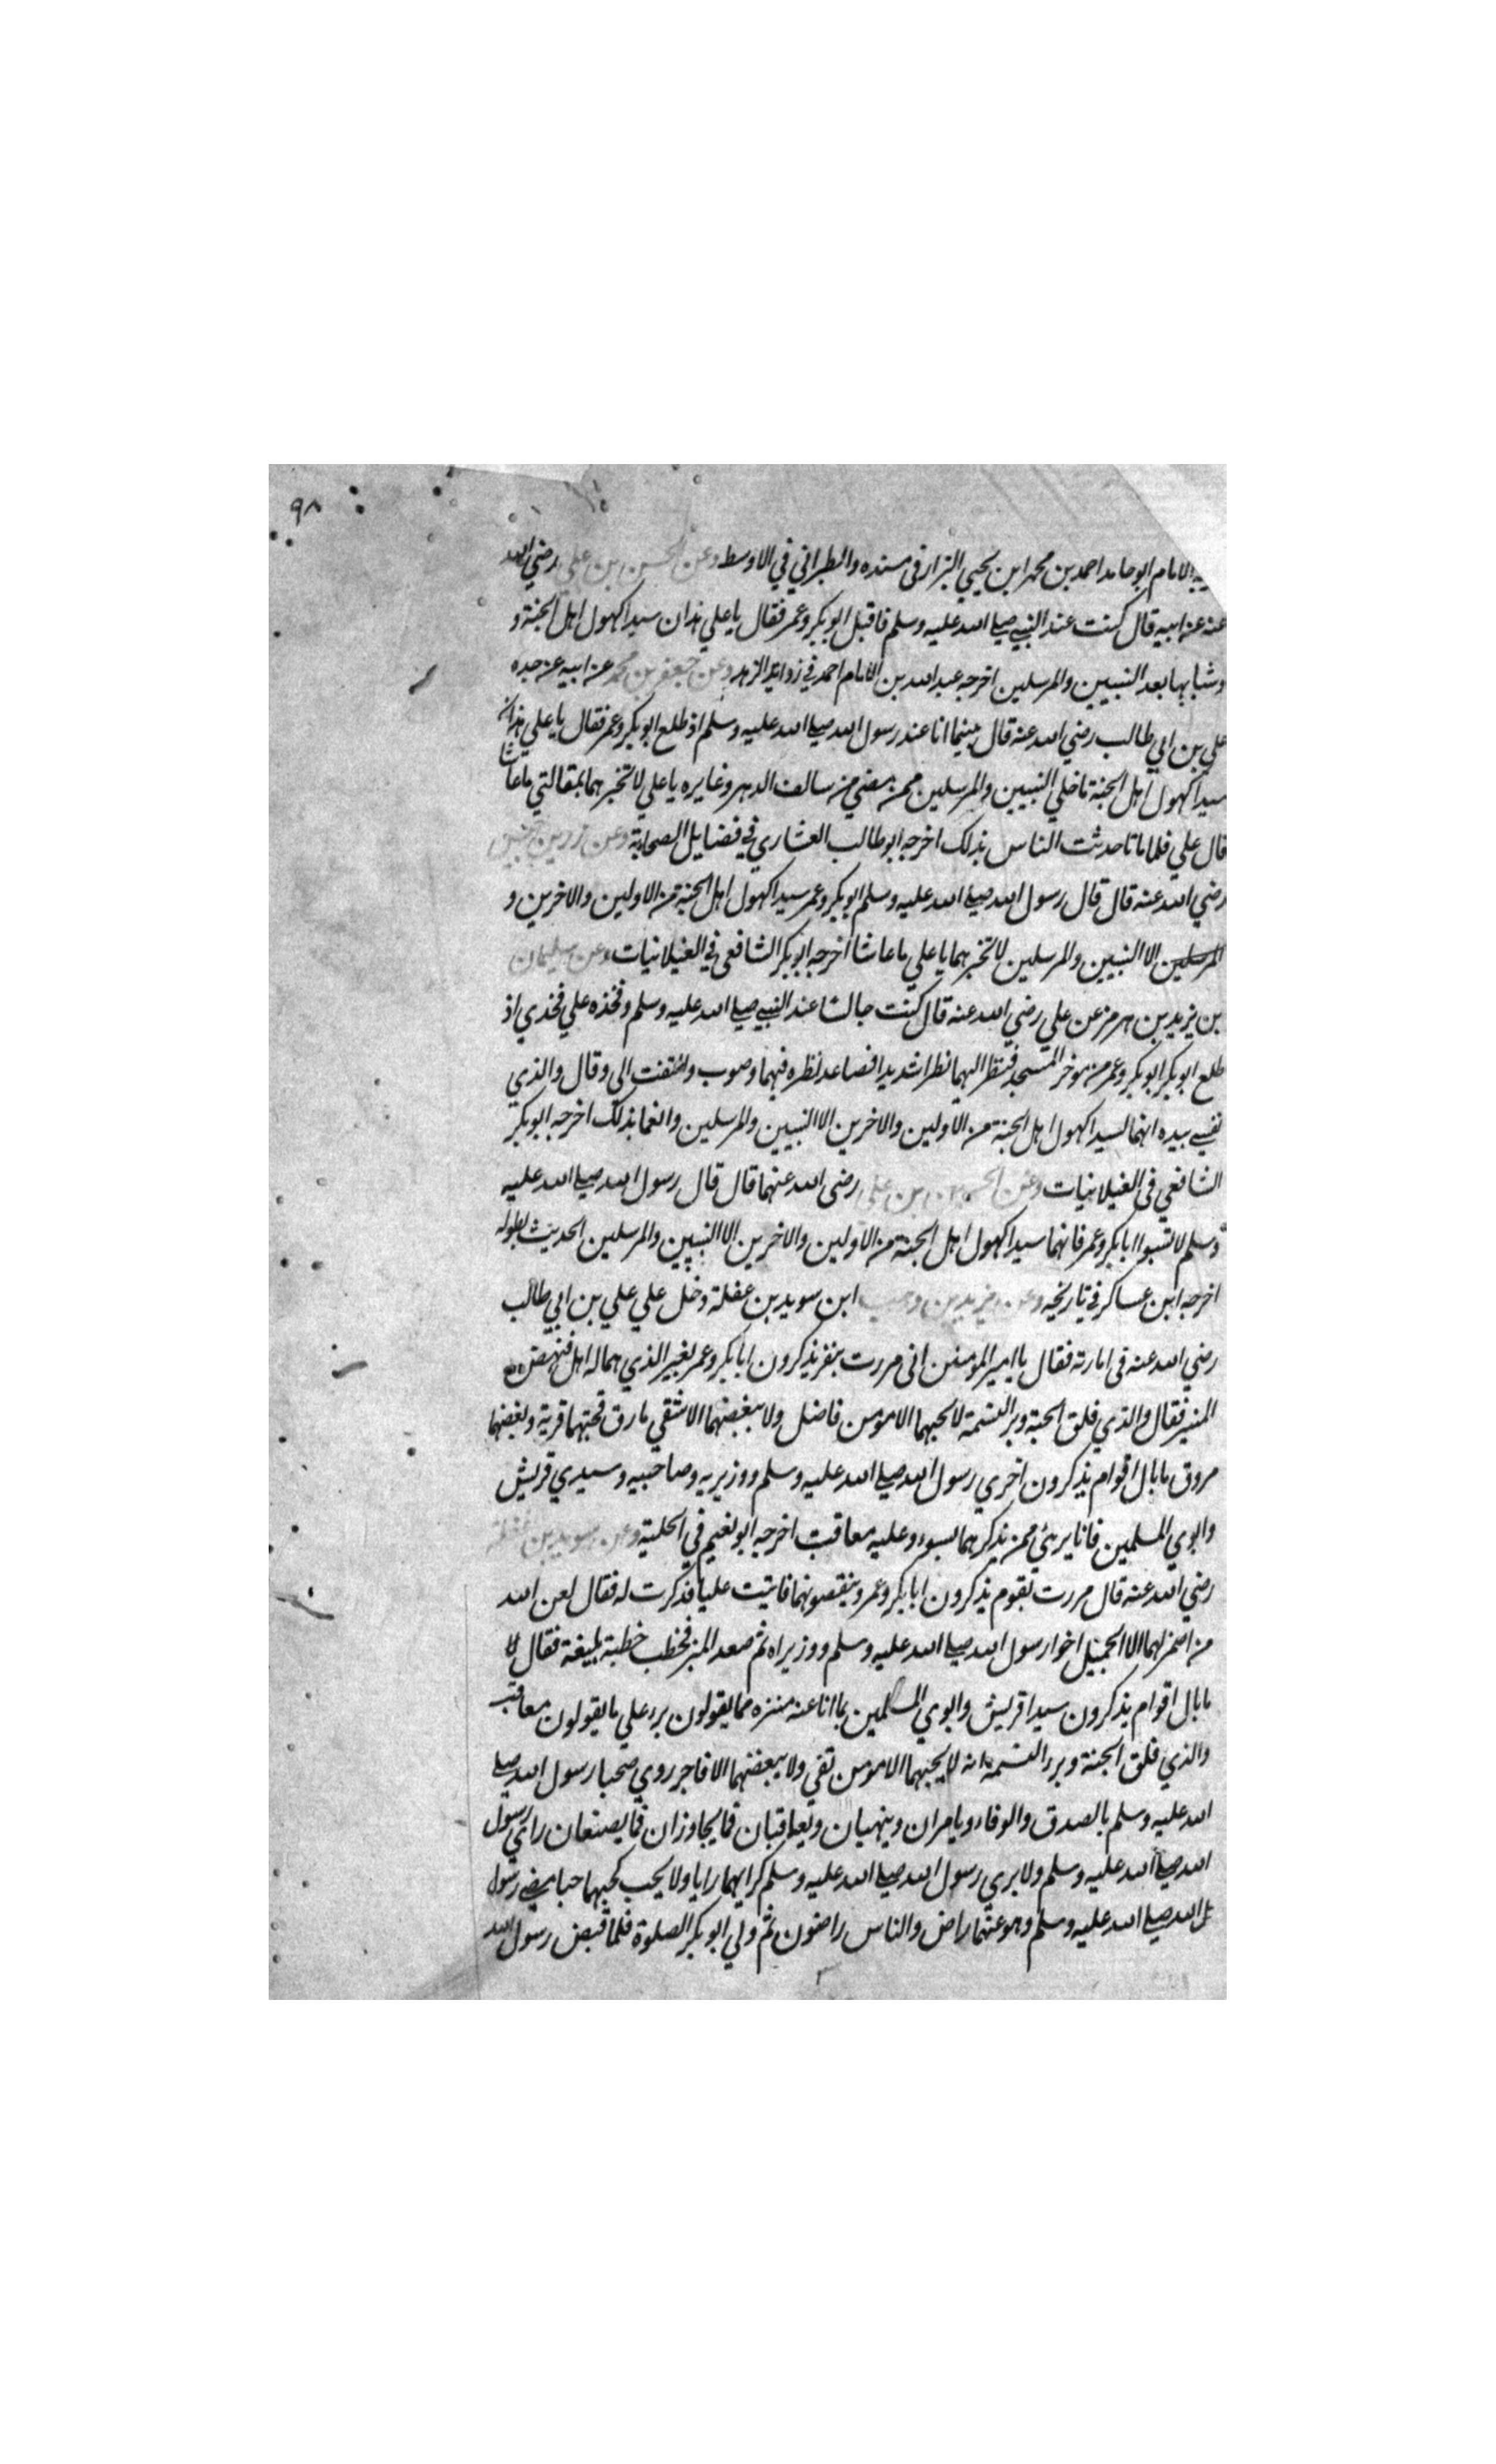 ٩٨
الامام ابو حامد احمد بن محمد ابن يحيي البزار في مسنده والطبراني في الاوسط وعن الحسن بن علي رضي الله
عنه عن ابيه قال كنت عند النبي صلي الله عليه وسلم فاقبل ابو بكر وعمر فقال يا علي هذان سيدا كهول اهل الجنة و
وشبابها بعد النبيين والمرسلين اخرجه عبد الله بن الامام احمد في زوايد الزهد وعن جعفر بن محمد عن ابيه عن جده
علي بن ابي طالب رضي الله عنه قال بينما انا عند رسول الله صلي الله عليه وسلم اذ طلع ابو بكر وعمر فقال يا علي هذان
سيدا كهول اهل الجنة ما خلي النبيين والمرسلين ممن مضي من سالف الدهر وغابره يا علي لا تخبرهما بمقالتي ما عاشا
قال علي فلما ماتا حدثت الناس بذلك اخرجه ابو طالب العشاري في فضايل الصحابة وعن زر بن حبيش
رضي الله عنه قال قال رسول الله صلي الله عليه وسلم ابو بكر وعمر سيدا كهول اهل الجنة من الاولين والاخرين و
المرسلين الا النبيين والمرسلين لا تخبرهما يا علي ما عاشا اخرجه ابو بكر الشافعي في الغيلانيات وعن سليمان
بن يزيد بن هرمز عن علي رضي الله عنه قال كنت جالسا عند النبي صلي الله عليه وسلم وفخذه علي فخذي اذ
طلع ابو بكر ابو بكر وعمر من موخر المسجد فنظر اليهما نظرا شديدا فصاعد نظره فيهما وصوب والتفت الي وقال والذي
نفسي بيده انهما لسيدا كهول اهل الجنة من الاولين والاخرين الا النبيين والمرسلين وانعما بذلك اخرجه ابو بكر
الشافعي في الغيلانيات وعن الحسين بن علي رضي الله عنهما قال قال رسول الله صلي الله عليه
وسلم لا تسبوا ابا بكر وعمر فانهما سيدا كهول اهل الجنة من الاولين والاخرين الا النبيين والمرسلين الحديث بطوله
اخرجه ابن عساكر في تاريخه وعن يزيد بن وهب ابن سويد بن غفلة دخل علي علي بن ابي طالب
رضي الله عنه في امارته فقال يا امير المؤمنين اني مررت بنفر يذكرون ابا بكر وعمر بغير الذي هما له اهل فنهض
المنبر فقال والذي فلق الحبة وبرا النسمة لا يحبهما الا مومن فاضل ولا يبغضهما الا شقي مارق فحبهما قربة وبغضهما
مروق ما بال اقوام يذكرون اخوي رسول الله صلي الله عليه وسلم ووزيريه وصاحبيه وسيدي قريش
وابوي المسلمين فانا بريء ممن يذكرهما بسوء وعليه معاقب اخرجه ابو نعيم في الحلية وعن سويد بن غفلة
رضي الله عنه قال مررت بقوم يذكرون ابا بكر وعمر وينقصونهما فاتيت عليا فذكرت له فقال لعن الله
من اضمر لهما الا الجميل اخوا رسول الله صلي الله عليه وسلم ووزيراه ثم صعد المنبر فخطب خطبة بليغة فقال
ما بال اقوام يذكرون سيدا قريش وابوي المسلمين بما انا عنه منزه مما يقولون برء علي ما يقولون معاقب
والذي فلق الجنة وبرء النسمة انه لا يحبهما الا مومن تقي ولا يبغضهما الا فاجر روي صحبا رسول الله صلي
الله عليه وسلم بالصدق والوفاء ويامران وينهيان ويعاقبان فما يجاوزان فما يصنعان راي رسول
الله صلي الله عليه وسلم ولا يري رسول الله صلي الله عليه وسلم كرايهما رايا ولا يحب كحبهما حبا مضي رسول
الله صلي الله عليه وسلم وهو عنهما راض والناس راضون ثم ولي ابو بكر الصلوة فلما قبض رسول الله